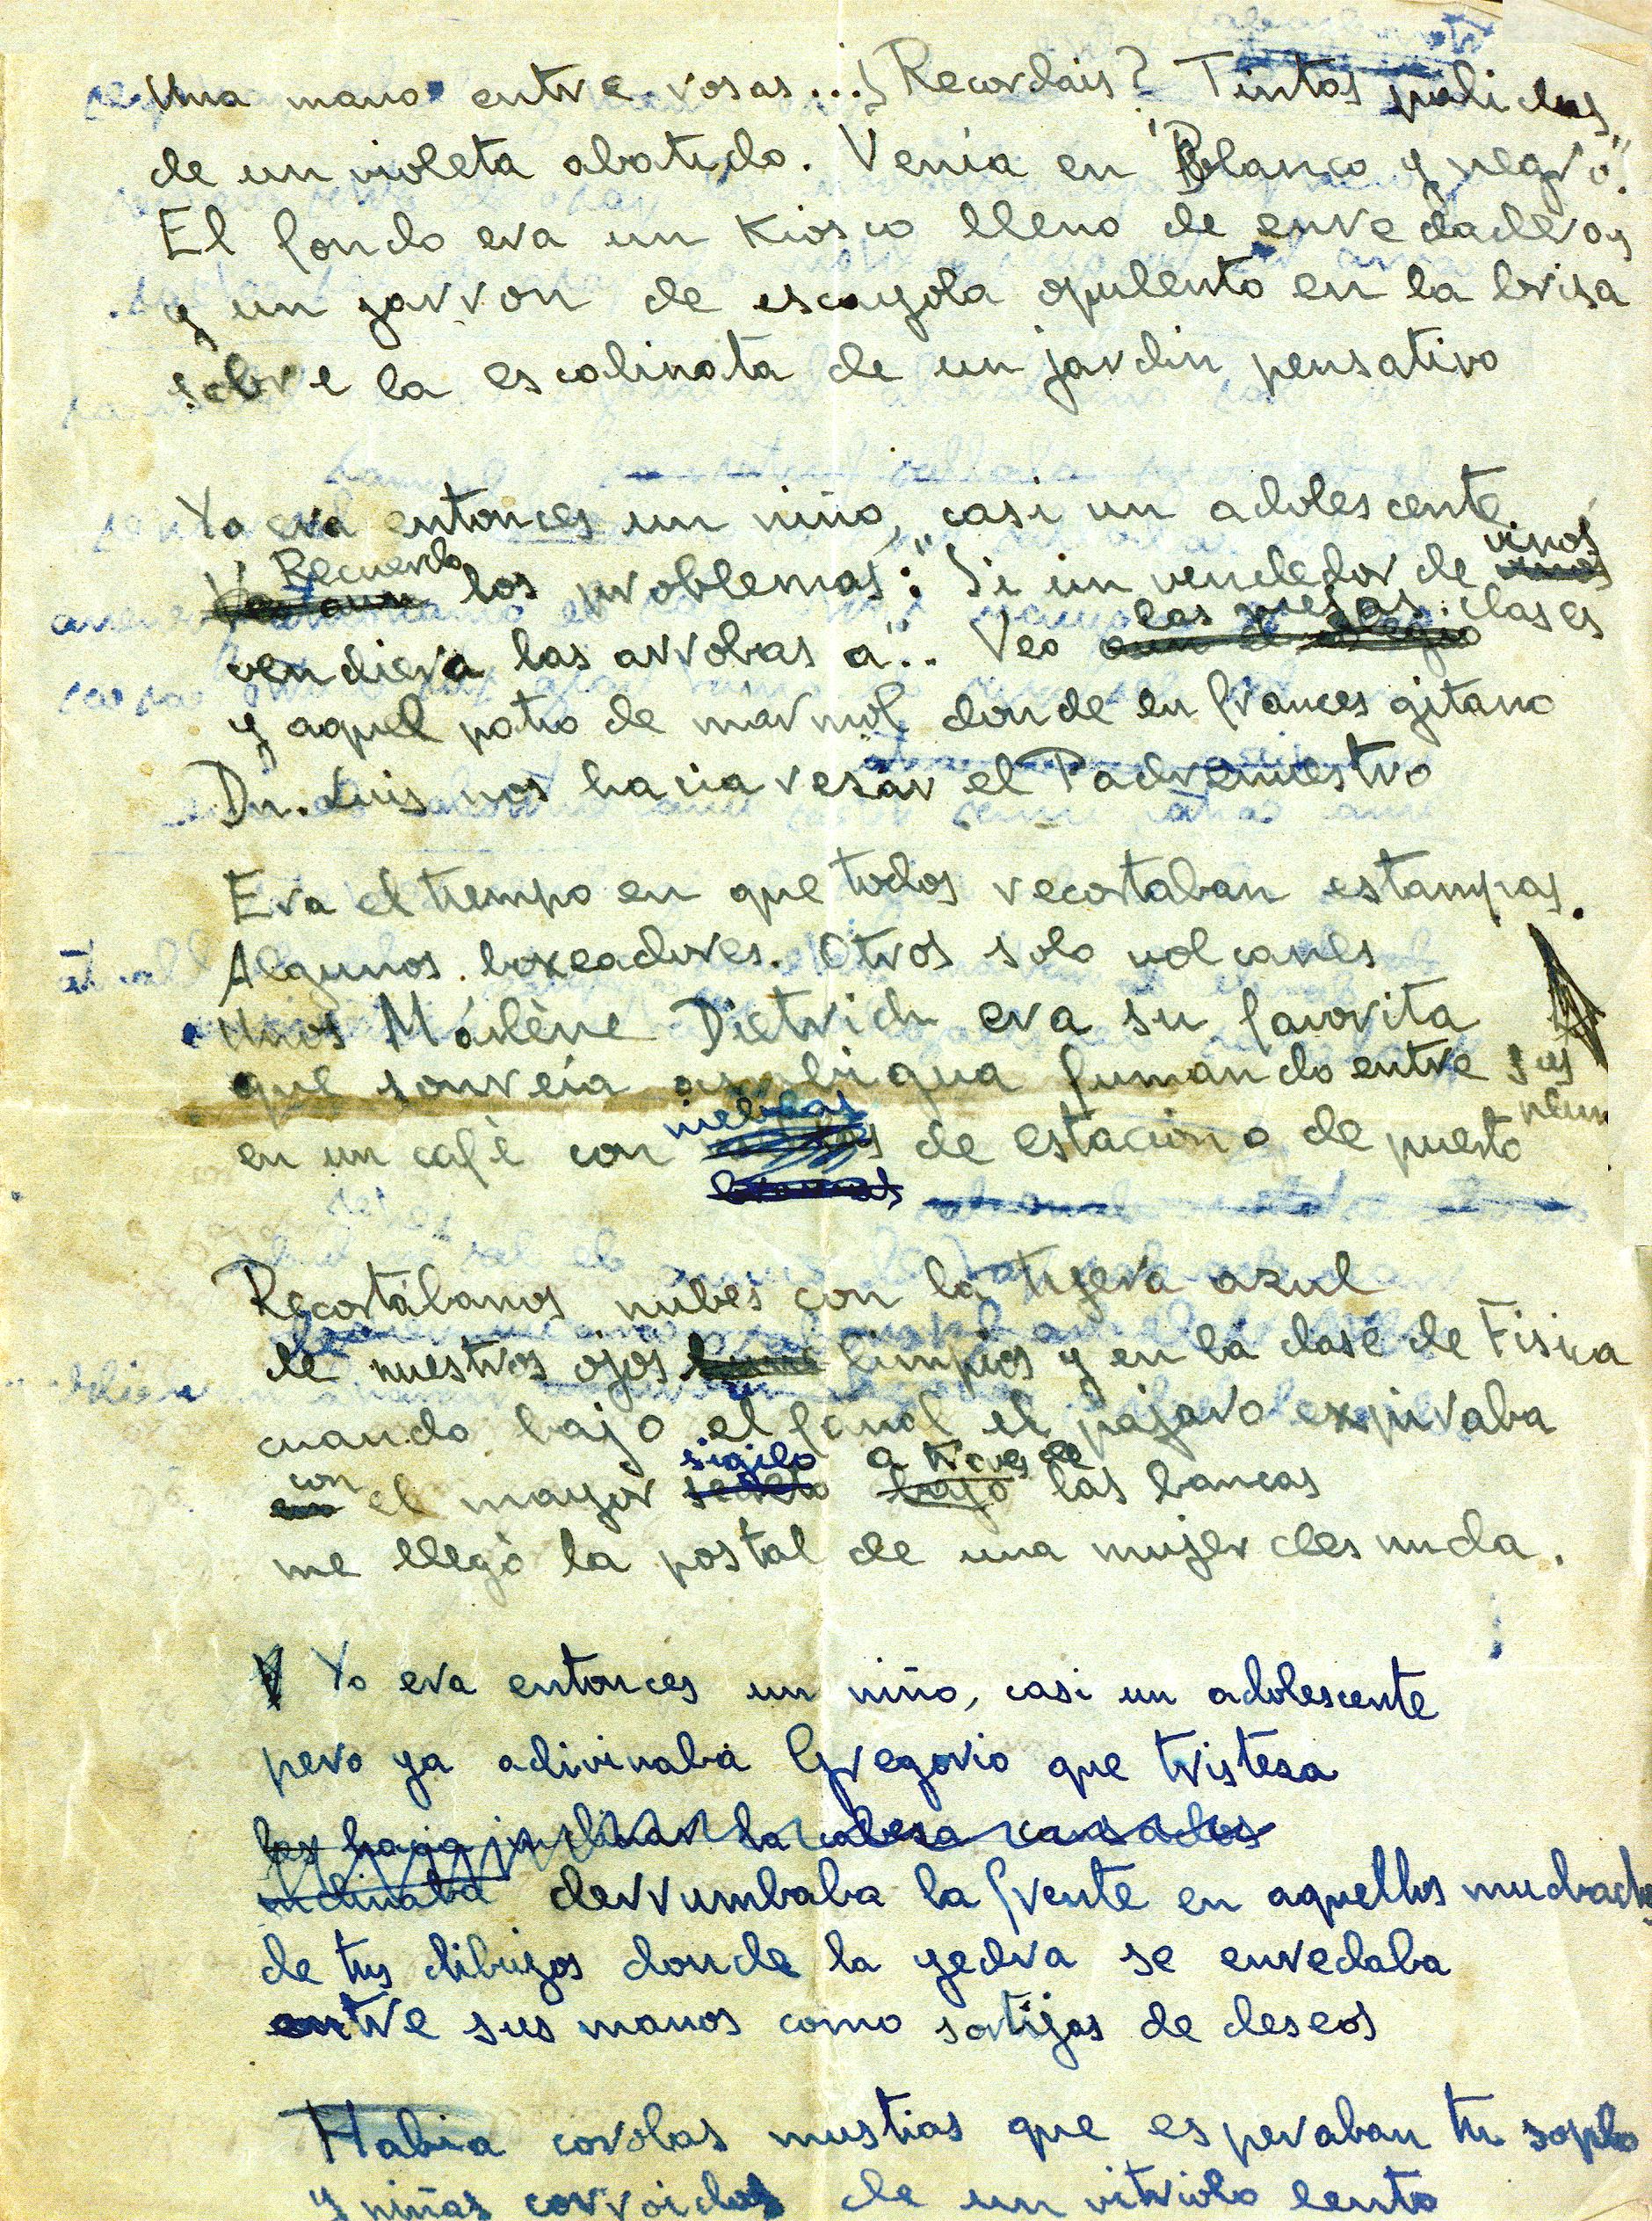 Una mano entre rosas...¿Recordais? Tintas pálidas
de un violeta abatido. Venía en "Blanco y negro".
El fondo era un Kiosco lleno de enredaderas
y un jarron de escayola opulento en la brisa
sobre la escalinata de un jardin pensativo
Yo era entonces un niño, casi un adolescente.
Recuerdo los problemas: "Si un vendedor de vinos
vendiera las arrobas a".. Veo las mesas. clases
y aquel patio de mármol donde en frances gitano
Dn. Luis nos hacia rezar el Padrenuestro
Era el tiempo en que todos recortaban estampas.
Algunos boxeadores. Otros solo volcanes
Unos Márlène Dietrich era su favorita
que sonreía ambigua fumando entre sus
en un café con nieblas de estacion o de puerto
Recortábamos nubes con la tijera azul
de nuestros ojos limpios y en la clase de Fisica
cuando bajo el fanal el pajaro expiraba
con el mayor sigilo a traves de las bancas
me llegó la postal de una mujer desnuda.
Yo era entonces un niño, casi un adolescente
pero ya adivinaba Gregorio que tristeza
les hacia inclinar la cabeza cansados
inclinaba derrumbaba la frente en aquellos muchachos
de tus dibujos donde la yedra se enredaba
entre sus manos como sortijas de deseos
Habia corolas mustias que esperaban tu soplo
y niñas corroidas de un vitriolo lento